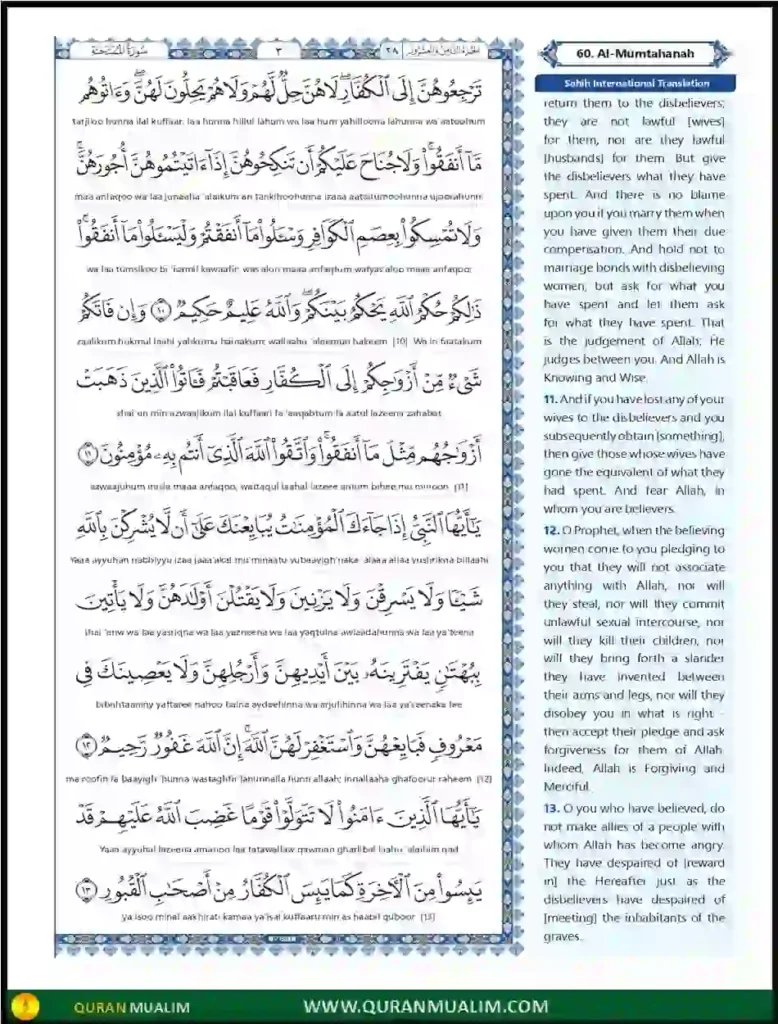 سُورَةُ المُمْتَحنَة
٣
٢٨
الجزء الثامن والعشرون
تَرْجِعُوهُنَّ إِلَى ٱلْكُفَّارِ ۖ لَا هُنَّ حِلٌّ لَّهُمْ وَلَا هُمْ يَحِلُّونَ لَهُنَّ ۖ وَءَاتُوهُم
tarji'oo hunna ilal kuffaar; laa hunna hillul lahum wa laa hum yahilloona lahunna wa aatoohum
مَّآ أَنفَقُوا۟ ۚ وَلَا جُنَاحَ عَلَيْكُمْ أَن تَنكِحُوهُنَّ إِذَآ ءَاتَيْتُمُوهُنَّ أُجُورَهُنَّ ۚ
maa anfaqoo wa laa junaaha 'alaikum an tankihoohunna izaaa aataitumoohunna ujoorahunn
وَلَا تُمْسِكُوا۟ بِعِصَمِ ٱلْكَوَافِرِ وَسْـَٔلُوا۟ مَآ أَنفَقْتُمْ وَلْيَسْـَٔلُوا۟ مَآ أَنفَقُوا۟ ۚ
wa laa tumsikoo bi 'isamil kawaafir; was'aloo maaa anfaqtum walyas'aloo maaa anfaqoo;
ذَٰلِكُمْ حُكْمُ ٱللَّهِ ۖ يَحْكُمُ بَيْنَكُمْ ۚ وَٱللَّهُ عَلِيمٌ حَكِيمٌ ۝١٠ وَإِن فَاتَكُمْ
zaalikum hukmul laahi yahkumu bainakum; wallaahu 'aleemun hakeem [10] Wa in faatakum
شَىْءٌ مِّنْ أَزْوَٰجِكُمْ إِلَى ٱلْكُفَّارِ فَعَاقَبْتُمْ فَـَٔاتُوا۟ ٱلَّذِينَ ذَهَبَتْ
shai'un min azwaajikum ilal kuffaari fa'aaqabtum fa aatul lazeena zahabat
أَزْوَٰجُهُم مِّثْلَ مَآ أَنفَقُوا۟ ۚ وَٱتَّقُوا۟ ٱللَّهَ ٱلَّذِىٓ أَنتُم بِهِۦ مُؤْمِنُونَ ۝١١
azwaajuhum misla maaa anfaqoo; wattaqul laahal lazeee antum bihee mu'minoon [11]
يَـٰٓأَيُّهَا ٱلنَّبِىُّ إِذَا جَآءَكَ ٱلْمُؤْمِنَـٰتُ يُبَايِعْنَكَ عَلَىٰٓ أَن لَّا يُشْرِكْنَ بِٱللَّهِ
Yaaa ayyuhan nabbiyyu izaa jaaa'akal mu'minaatu yubaayigh'naka 'alaaa allaa yushrikna billaahi
شَيْـًٔا وَلَا يَسْرِقْنَ وَلَا يَزْنِينَ وَلَا يَقْتُلْنَ أَوْلَـٰدَهُنَّ وَلَا يَأْتِينَ
shai 'anw wa laa yasriqna wa laa yazneena wa laa yaqtulna awlaadahunna wa laa ya'teena
بِبُهْتَـٰنٍ يَفْتَرِينَهُۥ بَيْنَ أَيْدِيهِنَّ وَأَرْجُلِهِنَّ وَلَا يَعْصِينَكَ فِى
bibuhtaaniny yaftaree nahoo baina aydeehinna wa arjulihinna wa laa ya'seenaka fee
مَعْرُوفٍ ۙ فَبَايِعْهُنَّ وَٱسْتَغْفِرْ لَهُنَّ ٱللَّهَ ۖ إِنَّ ٱللَّهَ غَفُورٌ رَّحِيمٌ ۝١٢
ma'roofin fa baayigh 'hunna wastaghfir lahunnalla hunn allaah; innallaaha ghafoorur raheem [12]
يَـٰٓأَيُّهَا ٱلَّذِينَ ءَامَنُوا۟ لَا تَتَوَلَّوْا۟ قَوْمًا غَضِبَ ٱللَّهُ عَلَيْهِمْ قَدْ
Yaaa ayyuhal lazeena amanoo laa tatawallaw qawman ghadibal laahu 'alaihim qad
يَئِسُوا۟ مِنَ ٱلْـَٔاخِرَةِ كَمَا يَئِسَ ٱلْكُفَّارُ مِنْ أَصْحَـٰبِ ٱلْقُبُورِ ۝١٣
ya'isoo minal aakhirati kamaa ya'isal kuffaaru min as haabil quboor [13]
60. Al-Mumtahanah
Sahih International Translation
return them to the disbelievers;
they are not lawful [wives]
for them, nor are they lawful
[husbands] for them. But give
the disbelievers what they have
spent. And there is no blame
upon you if you marry them when
you have given them their due
compensation. And hold not to
marriage bonds with disbelieving
women, but ask for what you
have spent and let them ask
for what they have spent. That
is the judgement of Allah; He
judges between you. And Allah is
Knowing and Wise.
11. And if you have lost any of your
wives to the disbelievers and you
subsequently obtain [something],
then give those whose wives have
gone the equivalent of what they
had spent. And fear Allah, in
whom you are believers.
12. O Prophet, when the believing
women come to you pledging to
you that they will not associate
anything with Allah, nor will
they steal, nor will they commit
unlawful sexual intercourse, nor
will they kill their children, nor
will they bring forth a slander
they have invented between
their arms and legs, nor will they
disobey you in what is right -
then accept their pledge and ask
forgiveness for them of Allah.
Indeed, Allah is Forgiving and
Merciful.
13. O you who have believed, do
not make allies of a people with
whom Allah has become angry.
They have despaired of [reward
in] the Hereafter just as the
disbelievers have despaired of
[meeting] the inhabitants of the
graves.
QURAN MUALIM
WWW.QURANMUALIM.COM